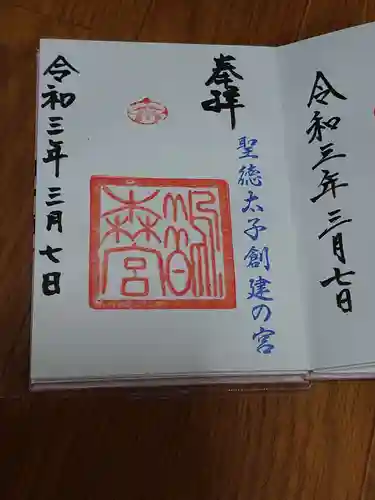 令和三年三月七日
奉拝
聖徳太子創建の宮
鵲森宮
令和三年三月七日